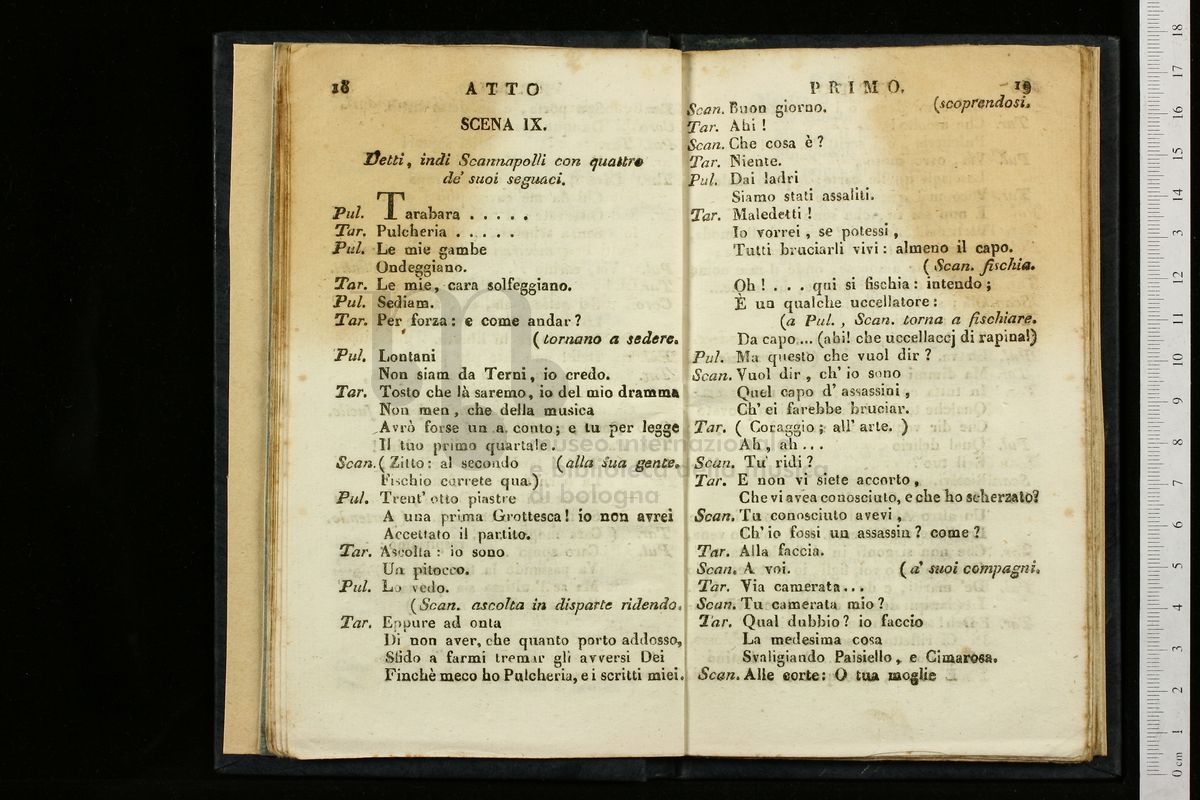 18
ATTO
SCENA IX.
Detti, indi Scannapolli con quattro
de' suoi seguaci.
Pul. Tarabara . . . . .
Tar. Pulcheria . . . . .
Pul. Le mie gambe
Ondeggiano.
Tar. Le mie, cara solfeggiano.
Pul. Sediam.
Tar. Per forza: e come andar?
(tornano a sedere.
Pul. Lontani
Non siam da Terni, io credo.
Tar. Tosto che là saremo, io del mio dramma
Non men, che della musica
Avrò forse un a conto; e tu per legge
Il tuo primo quartale.
Scan. (Zitto: al secondo (alla sua gente.
Fischio correte qua.)
Pul. Trent' otto piastre
A una prima Grottesca! io non avrei
Accettato il partito.
Tar. Ascolta: io sono
Un pitocco.
Pul. Lo vedo.
(Scan. ascolta in disparte ridendo.
Tar. Eppure ad onta
Di non aver, che quanto porto addosso,
Sfido a farmi tremar gli avversi Dei
Finchè meco ho Pulcheria, e i scritti miei.
PRIMO.
19
Scan. Buon giorno. (scoprendosi.
Tar. Ahi!
Scan. Che cosa è?
Tar. Niente.
Pul. Dai ladri
Siamo stati assaliti.
Tar. Maledetti!
Io vorrei, se potessi,
Tutti bruciarli vivi: almeno il capo.
(Scan. fischia.
Oh! . . . qui si fischia: intendo;
È un qualche uccellatore:
(a Pul., Scan. torna a fischiare.
Da capo... (ahi! che uccellaccj di rapina!)
Pul. Ma questo che vuol dir?
Scan. Vuol dir, ch' io sono
Quel capo d' assassini,
Ch' ei farebbe bruciar.
Tar. (Coraggio; all' arte.)
Ah, ah...
Scan. Tu ridi?
Tar. E non vi siete accorto,
Che vi avea conosciuto, e che ho scherzato?
Scan. Tu conosciuto avevi,
Ch' io fossi un assassin? come?
Tar. Alla faccia.
Scan. A voi. (a' suoi compagni.
Tar. Via camerata...
Scan. Tu camerata mio?
Tar. Qual dubbio? io faccio
La medesima cosa
Svaligiando Paisiello, e Cimarosa.
Scan. Alle corte: O tua moglie
m
museo internazionale
e biblioteca della musica
di bologna
0 cm 1 2 3 4 5 6 7 8 9 10 11 12 13 14 15 16 17 18